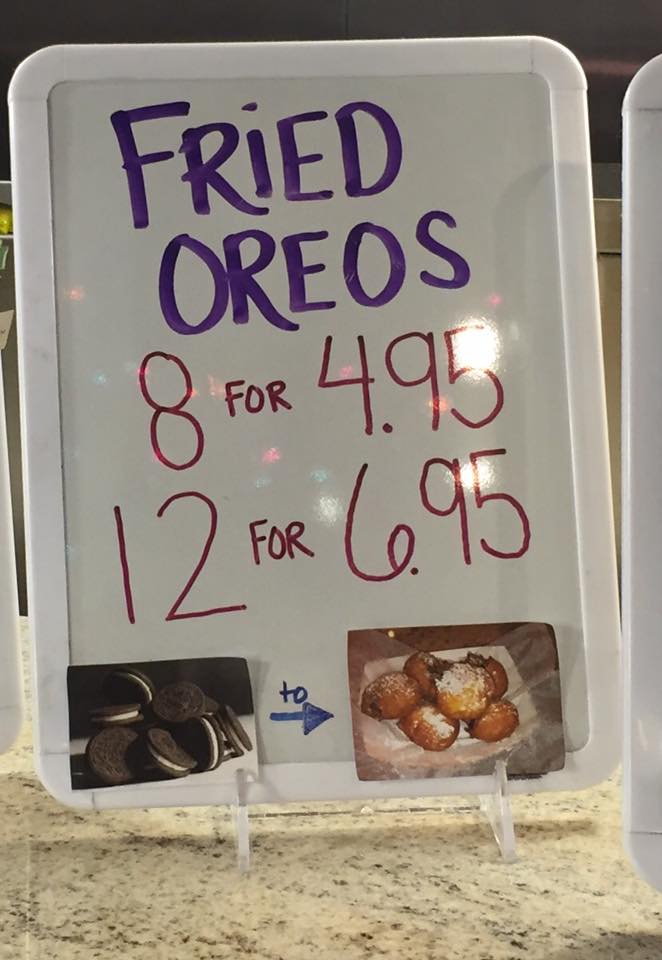 FRiED
OREOS
8 FOR 4.95
12 FOR 6.95
to